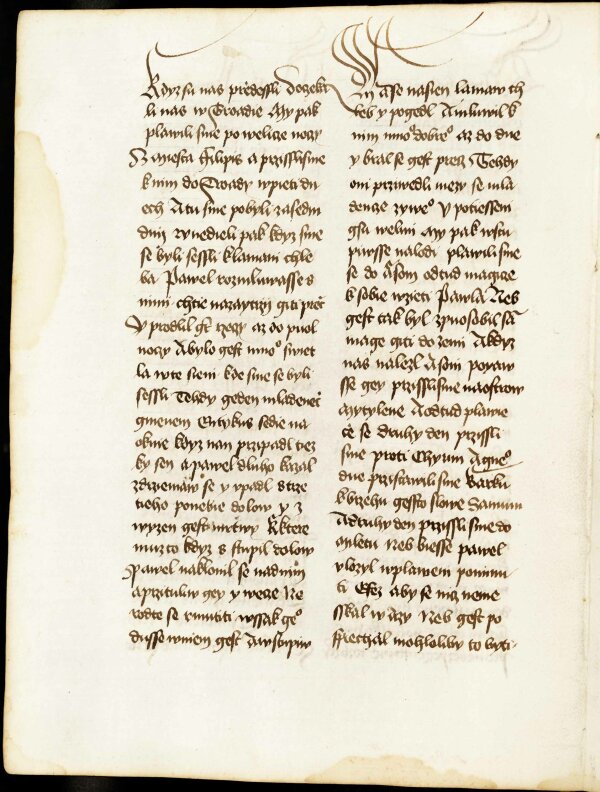 Kdyz su nas predessli Doczeka
li nas w Troadie My pak
plawili sme po welicze noczy
Z miesta Filipis a przisslisme
k nim do Troady w pieti dn
ech A tu sme pobyli za sedm
dnij W nedieli pak kdyz sme
se byli sessli k lamani chle
ba Pawel rozmluwasse s
nimi chtie nazaytrzij giti preč
Y prodlil gt rzeczy az do puol
noczy A bylo gest mnoᵒ swiet
la w te sieni kde sme se byli
sessli Tehdy geden mladenecz
gmenem Eutykus sedie na
oknie kdyz nan przipadl tiez
ky sen a pawel dluho kazal
zdrziemaw se y vpadl s trze
tieho ponebie dolow y z
wyzen gest mrtwy K ktere
muzto kdyz s stupil dolow
Pawel naklonil se nad nim
a przituliw gey y wecze Ne
rodte se rmutiti wssak geᵒ
dusse w niem gest A wstupiw
li A se nasien lamaw ch
leb y pogedl A mluwil k
nim mnoᵒ dobreᵒ az do dne
y bral se gest precz Tehdy
oni przwedli mezy se mla
dencze zyweᵒ Y potiesseni
gsu welmi My pak wsed
puwsse na lodi plawili sme
se do Ason odtud magicze
k sobie wzieti Pawla Neb
gest tak byl zpuosobil sa
magie giti do zemi A kdyz
nas nalezl Ason poyaw
sse gey przisslisme na ostrow
Mytylene A odtud plawie
ce se druhy den przissli
sme proti Chyum A gineᵒ
dne przistawili sme Barku
k brzehu gessto slowe Samum
A druhy den przissli sme do
Miletu Neb biesse pawel
vlozyl w plaweni pominu
ti Efez aby se nicz neme
sskal w Azy Neb gest po
spiechal mohloliby to byti